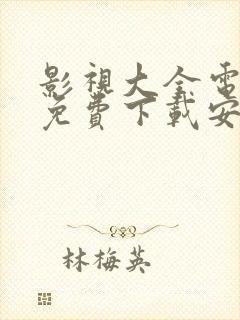 影視大全電
免費下載安
林梅英